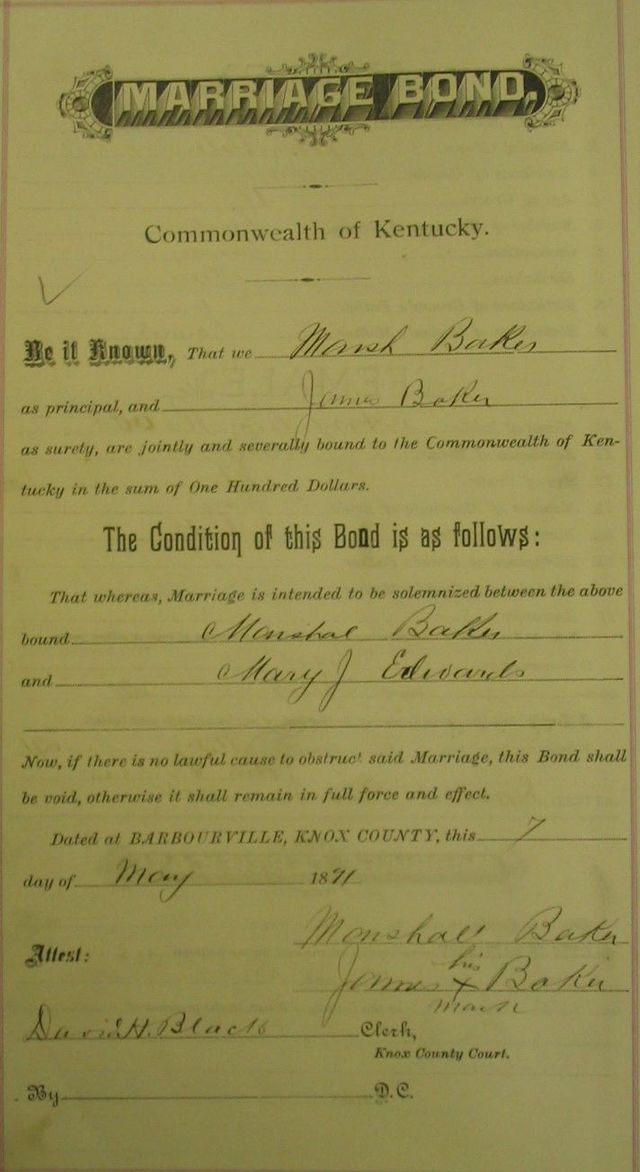 MARRIAGE BOND.
Commonwealth of Kentucky.
Be it Known, That we Marsh Baker
as principal, and James Baker
as surety, are jointly and severally bound to the Commonwealth of Ken-
tucky in the sum of One Hundred Dollars.
The Condition of this Bond is as follows:
That whereas, Marriage is intended to be solemnized between the above
bound Marshal Baker
and Mary J Edwards
Now, if there is no lawful cause to obstruct said Marriage, this Bond shall
be void, otherwise it shall remain in full force and effect.
Dated at BARBOURVILLE, KNOX COUNTY, this 7
day of May 1891
Marshall Baker
Attest:
his
James X Baker
mark
David H. Black Clerk,
Knox County Court.
By D.C.